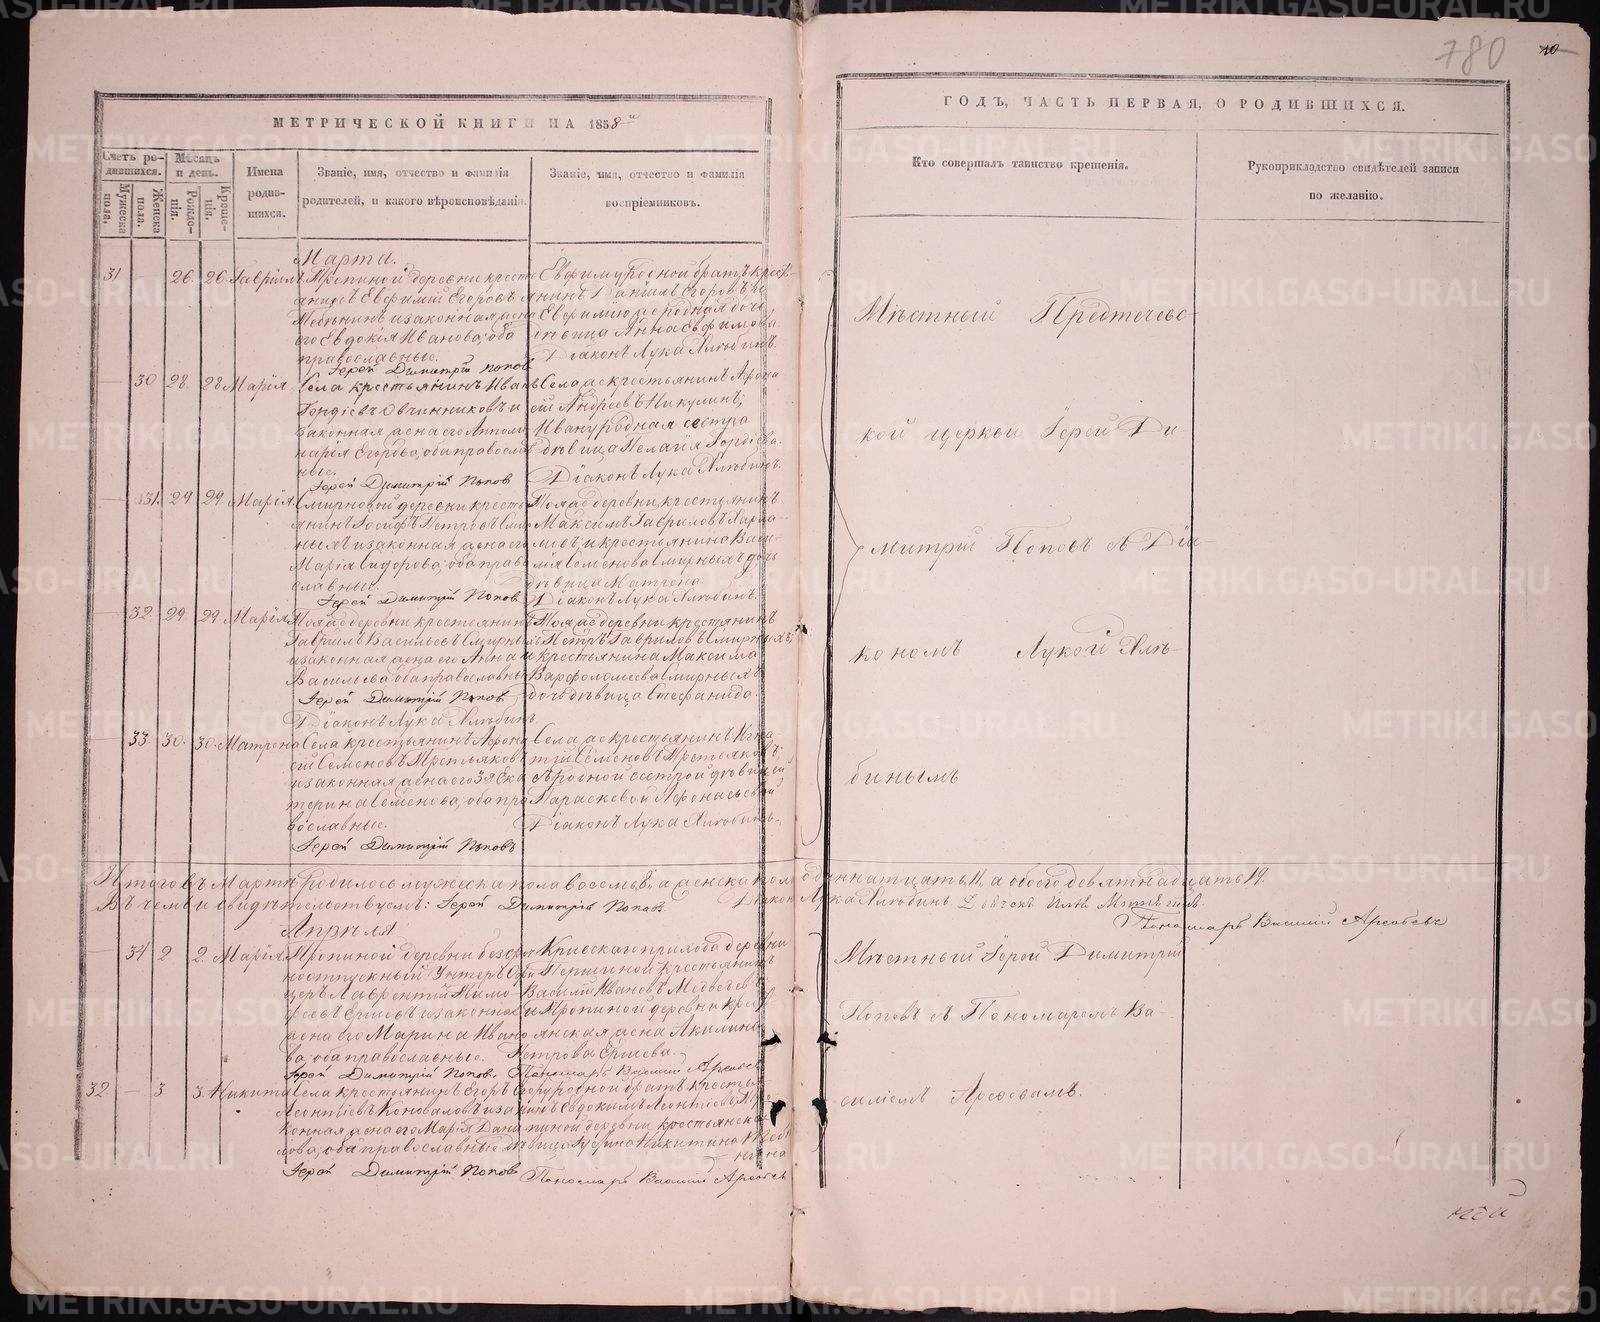 780
10
МЕТРИЧЕСКОЙ КНИГИ НА 1858й
ГОДЪ, ЧАСТЬ ПЕРВАЯ, О РОДИВШИХСЯ.
Счетъ родившихся.
Мужеска пола.
Женска пола.
Мѣсяцъ и день.
Рожденія.
Крещенія.
Имена родившихся.
Званіе, имя, отчество и фамилія
родителей, и какого вѣроисповѣданія.
Званіе, имя, отчество и фамилія
воспріемниковъ.
Кто совершалъ таинство крещенія.
Рукоприкладство свидѣтелей записи
по желанію.
Марта.
31 — 26. 26. Гавріилъ
Тропиной деревни кресть
янинъ Евфимій Егоровъ
и законная жена
его Евдокія Иванова, оба
православные.
Іерей Димитрій Попов
Евфиму родной братъ, крест
янинъ Даніилъ Егоровъ
Евфимію же родная дочь
дѣвица Анна Евфимова
Діаконъ Лука Ялюбинъ.
— 30 28. 28 Марія
Села крестьянинъ Иванъ
Гордіевъ Овчинниковъ и
законная жена его Аполи
нарія Егорова, оба православ
ные.
Іерей Димитрій Попов
Села же крестьянинъ Афона
сій Андреевъ Никулинъ;
Ивану родная сестра
дѣвица Пелагія Гордіева.
Діаконъ Лука Ялюбинъ.
— 31. 29 29 Марія
Смирновой деревни кресть
янинъ Іосифъ Петровъ Смир
ныхъ и законная жена его
Марія Сидорова, оба право
славные.
Іерей Димитрій Попов
Той же деревни, крестьянинъ
Максимъ Гавриловъ
и крестьянина
Семенова Смирныхъ дочь
дѣвица Матрена.
Діаконъ Лука Ялюбинъ.
— 32. 29. 29. Марія
Той же деревни крестьянинъ
Гавріилъ Васильевъ Смирныхъ
и законная жена его Анна
Васильева, оба православные
Іерей Димитрій Попов
Діаконъ Лука Ялюбинъ
Той же деревни крестьянинъ
Петръ Гавриловъ Смирныхъ;
и крестьянина Максима
Варфоломеева Смирныхъ
дочь дѣвица Стефанида.
— 33. 30. 30. Матрена
Села крестьянинъ Афона
сій Семеновъ Третьяковъ
и законная жена его Ека
терина Семенова, оба пра
вославные.
Іерей Димитрій Поповъ
Села же крестьянинъ Игна
тій Семеновъ Третьяковъ;
съ родной сестрой дѣвицей
Параскевой Афонасьевой
Діаконъ Лука Ялюбинъ.
Мѣстный Предтечевс
кой церкви Іерей Ди
митрій Поповъ съ Діа
кономъ Лукой Ялю
бинымъ
Итого въ Мартѣ родилось мужеска пола восемь, 8, а женска пола одиннатцать, 11, а обоего девятнадцать 19.
Въ чемъ и свидѣтельствуемъ: Іерей Димитрій Поповъ. Діаконъ Лука Ялюбинъ.
Пономарь Василій Арефьевъ
Апрѣля
— 34 2 2. Марія
Тропиной деревни безсроч
ноотпускный Унтеръ Офи
церъ Лаврентій Тимо
феевъ Ершевъ и законная
жена его Марина Ивано
ва, оба православные.
Іерей Димитрій Попов. Пономарь Василій Арефьев
Кривскаго прихода деревни
Першиной крестьянинъ
Василій Ивановъ Медведевъ
и Тропиной деревни крест
янская жена Акилина
Петрова Ершева.
Мѣстный Іерей Димитрій
Поповъ съ Пономаремъ Ва
силіемъ Арефьевымъ.
32 — 3 3. Никита
Села крестьянинъ Егоръ
Леонтіевъ Коноваловъ и за
конная жена его Марія Дани
лова, оба православные
Іерей Димитрій Попов
Егору родной братъ кресть
янинъ Евдокимъ Леонтіевъ
деревни крестьянска
дѣвица Никитина
Пономарь Василій Арефьев